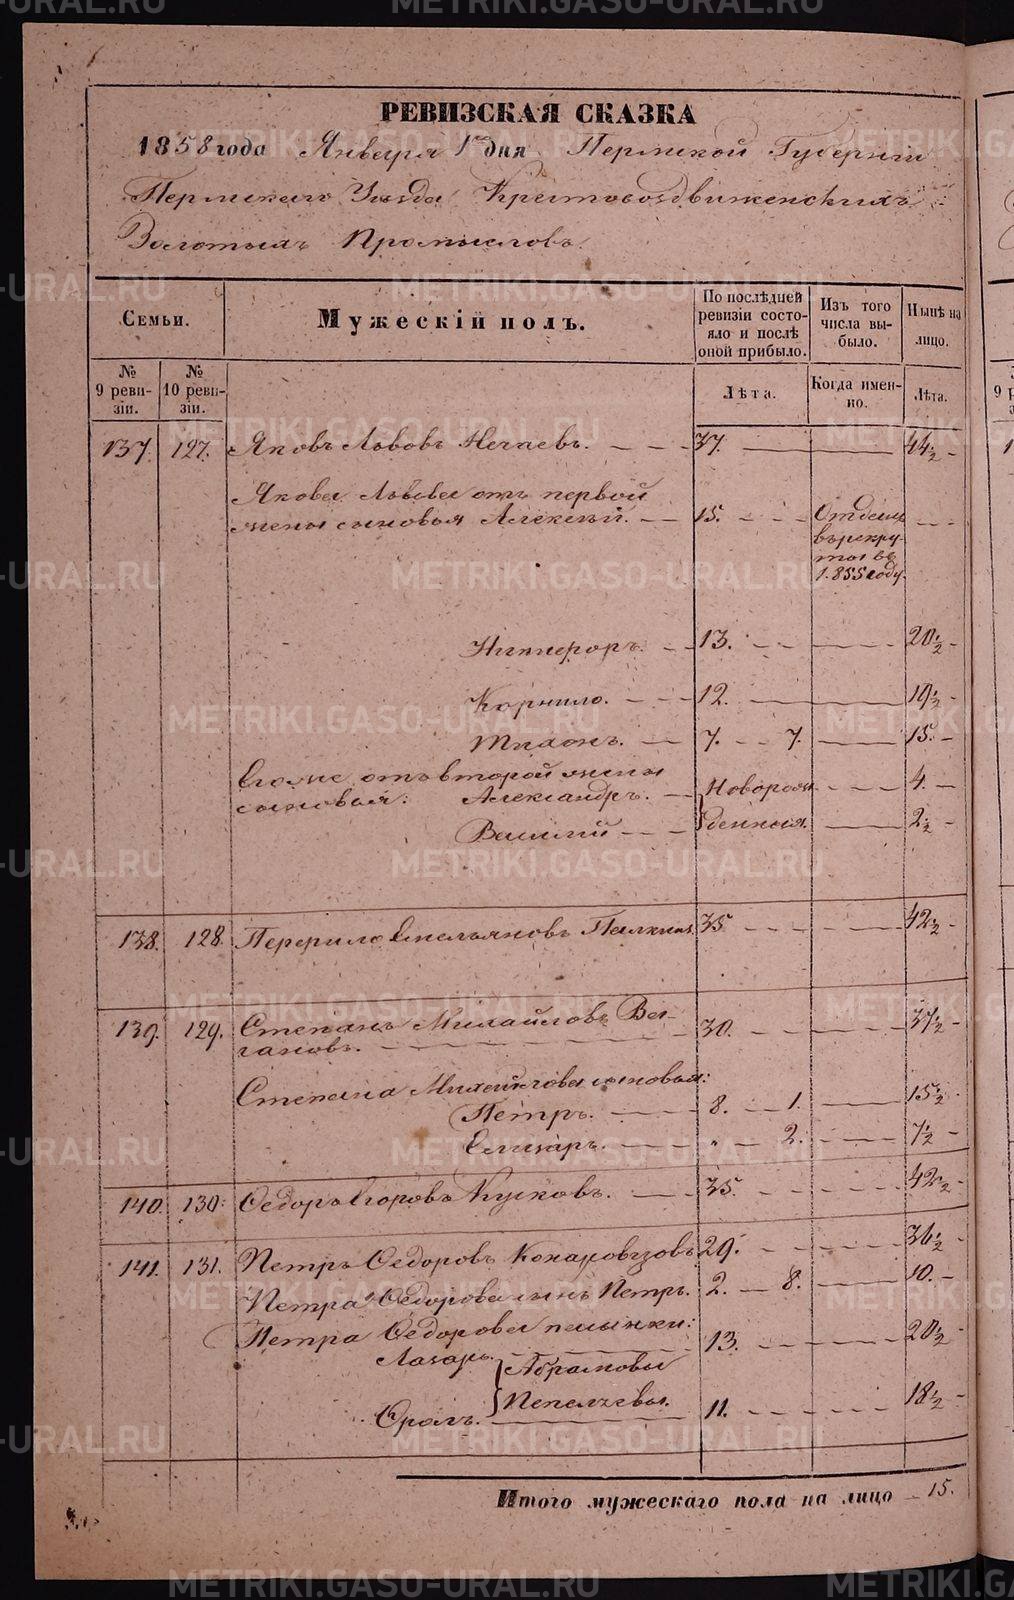 РЕВИЗСКАЯ СКАЗКА
1858 года Января 1го дня Пермской Губерніи
Пермскаго Уѣзда Крестовоздвиженскихъ
Золотыхъ Промысловъ.
Семьи.
Мужескій полъ.
По послѣдней ревизіи состояло и послѣ оной прибыло.
Изъ того числа выбыло.
Нынѣ на лицо.
№ 9 ревизіи.
№ 10 ревизіи.
Лѣта.
Когда именно.
Лѣта.
137. 127. Яковъ Львовъ Нечаевъ. 37. 44½
Якова Львова отъ первой
жены сыновья Алексѣй. 15. Отданъ
въ рекру-
ты въ
1855 году.
Никифоръ. 13. 20½
Корнило. 12. 19½
Тихонъ. 7. 7. 15.
Егоже отъ второй жены
сыновья: Александръ. Новорож- 4.
Василий денныя. 2½
138. 128. Перфило Емельяновъ 35 42½
139. 129. Степанъ Михайловъ Ва-
гановъ. 30. 37½
Степана Михайлова сыновья:
Петръ. 8. 1. 15½
Елизаръ. " 2. 7½
140. 130. Федоръ Егоровъ Кусковъ. 35. 42½
141. 131. Петръ Федоровъ 29. 36½
Петра Федорова сынъ Петръ. 2. 8. 10.
Петра Федорова пасынки:
Лазарь. 13. 20½
Абрамовы
Фролъ. 11. 18½
Итого мужескаго пола на лицо 15.
METRIKI.GASO-URAL.RU